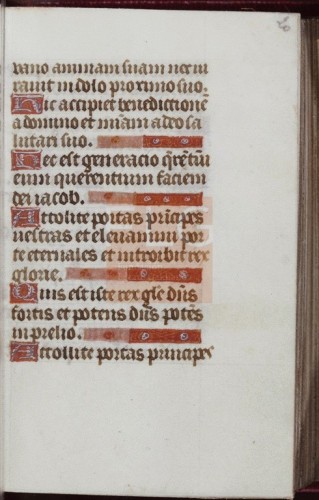 vano animam suam nec iu
ravit in dolo proximo suo.
Hic accipiet benedictionē
a domino et miām a deo sa
lutari suo.
Hec est generacio qrētiū
eum querentium faciem
dei iacob.
Attollite portas prīcipes
vestras et elevamini por
te eternales et introibit rex
glorie.
Quis est iste rex gle dn̄s
fortis et potens dn̄s potēs
in prelio.
Attollite portas principes